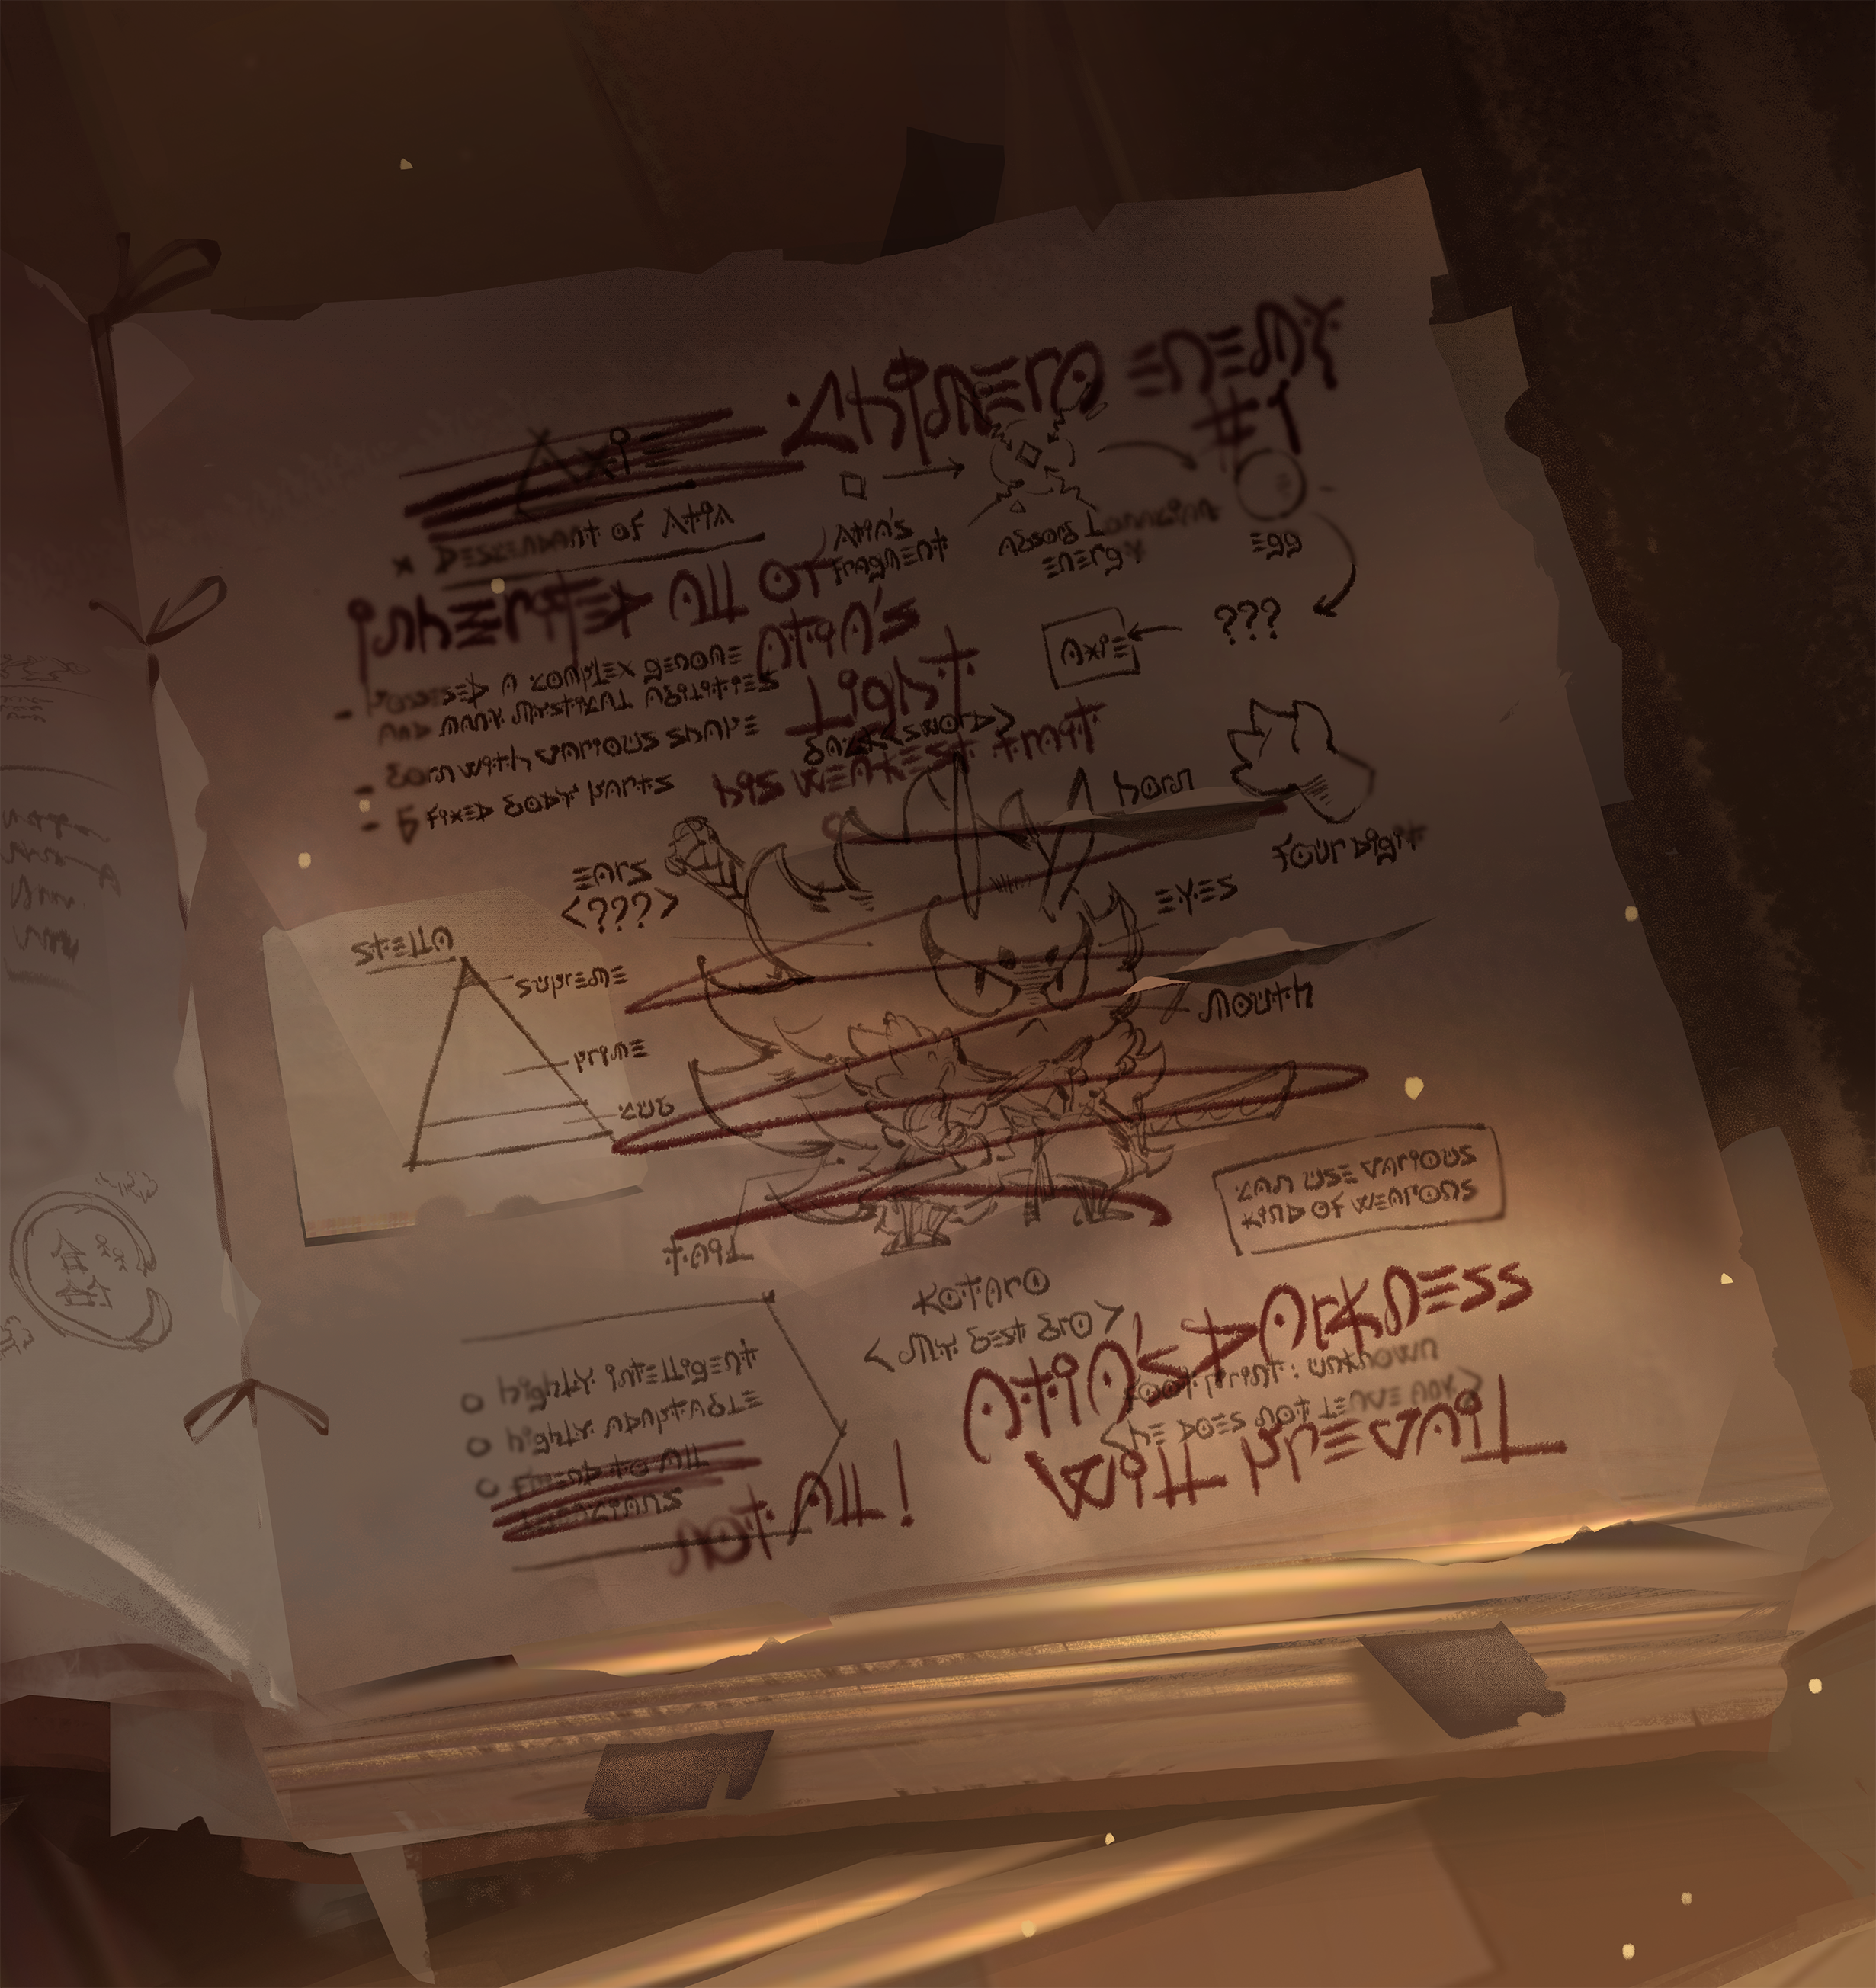 Axie
Chimera Enemy
#1
x Descendant of Atia
Atia's
fragment
Absorb Lunacian
energy
Egg
???
Axie
Inherited all of
Atia's
Light
- Possesed a complex genome
and many mystical abilities
- Born with various shape
- 6 fixed body parts
back <sword>
his weakest trait
horn
four digit
ears
<???>
eyes
mouth
Stella
supreme
prime
cub
tail
can use various
kind of weapons
Kotaro
<my best bro>
Atia's Darkness
footprint : unknown
<he does not leave any>
will prevail
o highly intelligent
o highly adaptable
o friend to all
lunacians
not all!